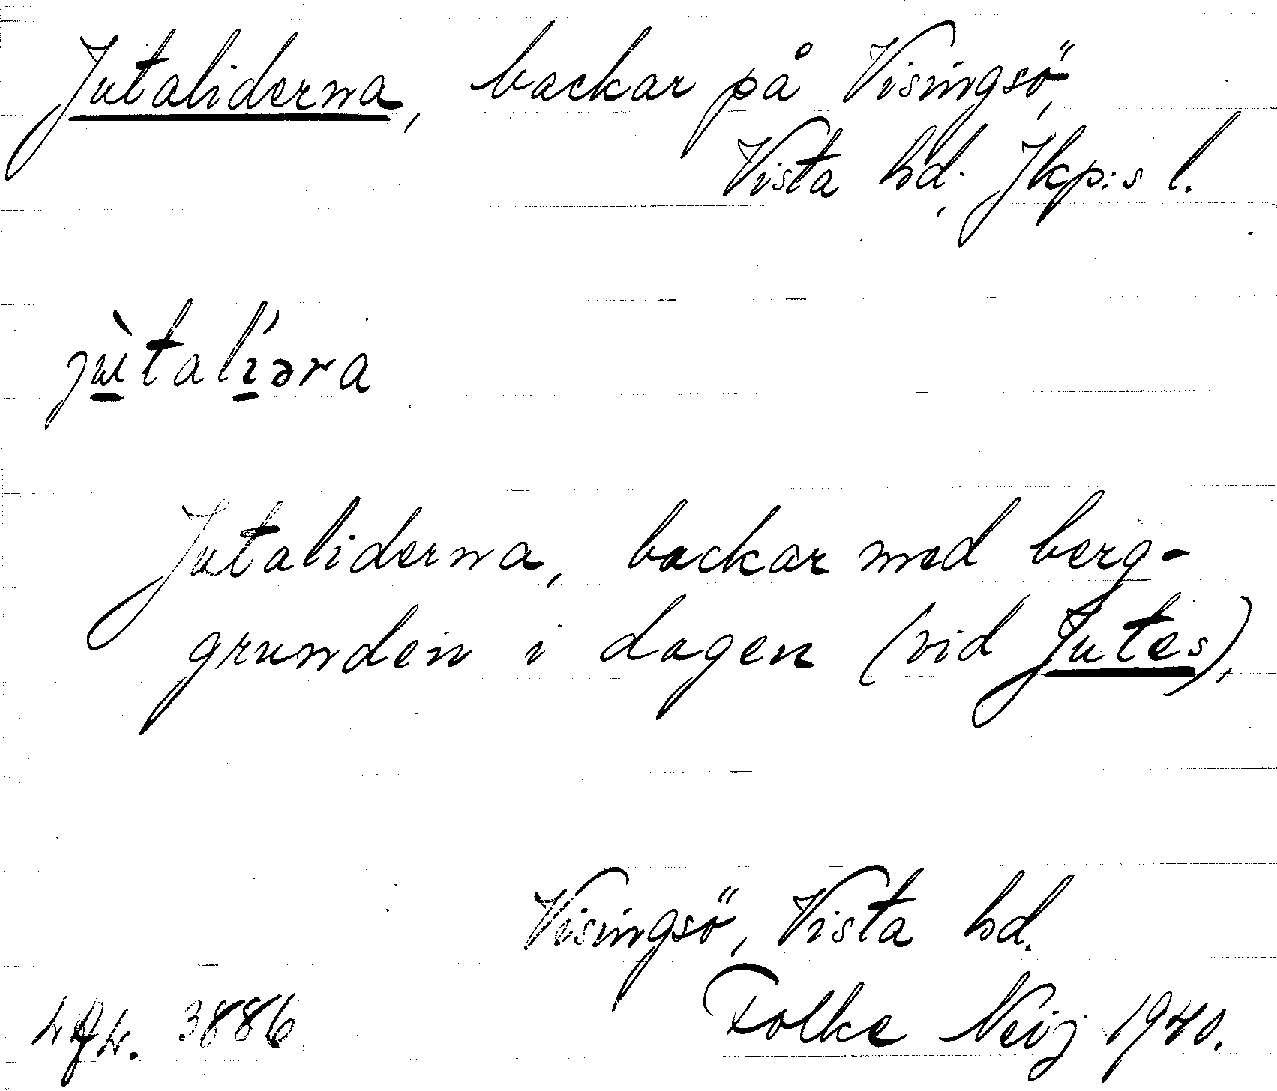 Jutaliderna, backar på Visingsö,
Vista hd. Jkp:s l.
jùtalíəra
Jutaliderna, backar med berg-
grunden i dagen (vid Jutes).
Visingsö, Vista hd.
3886 Folke Neij 1940.